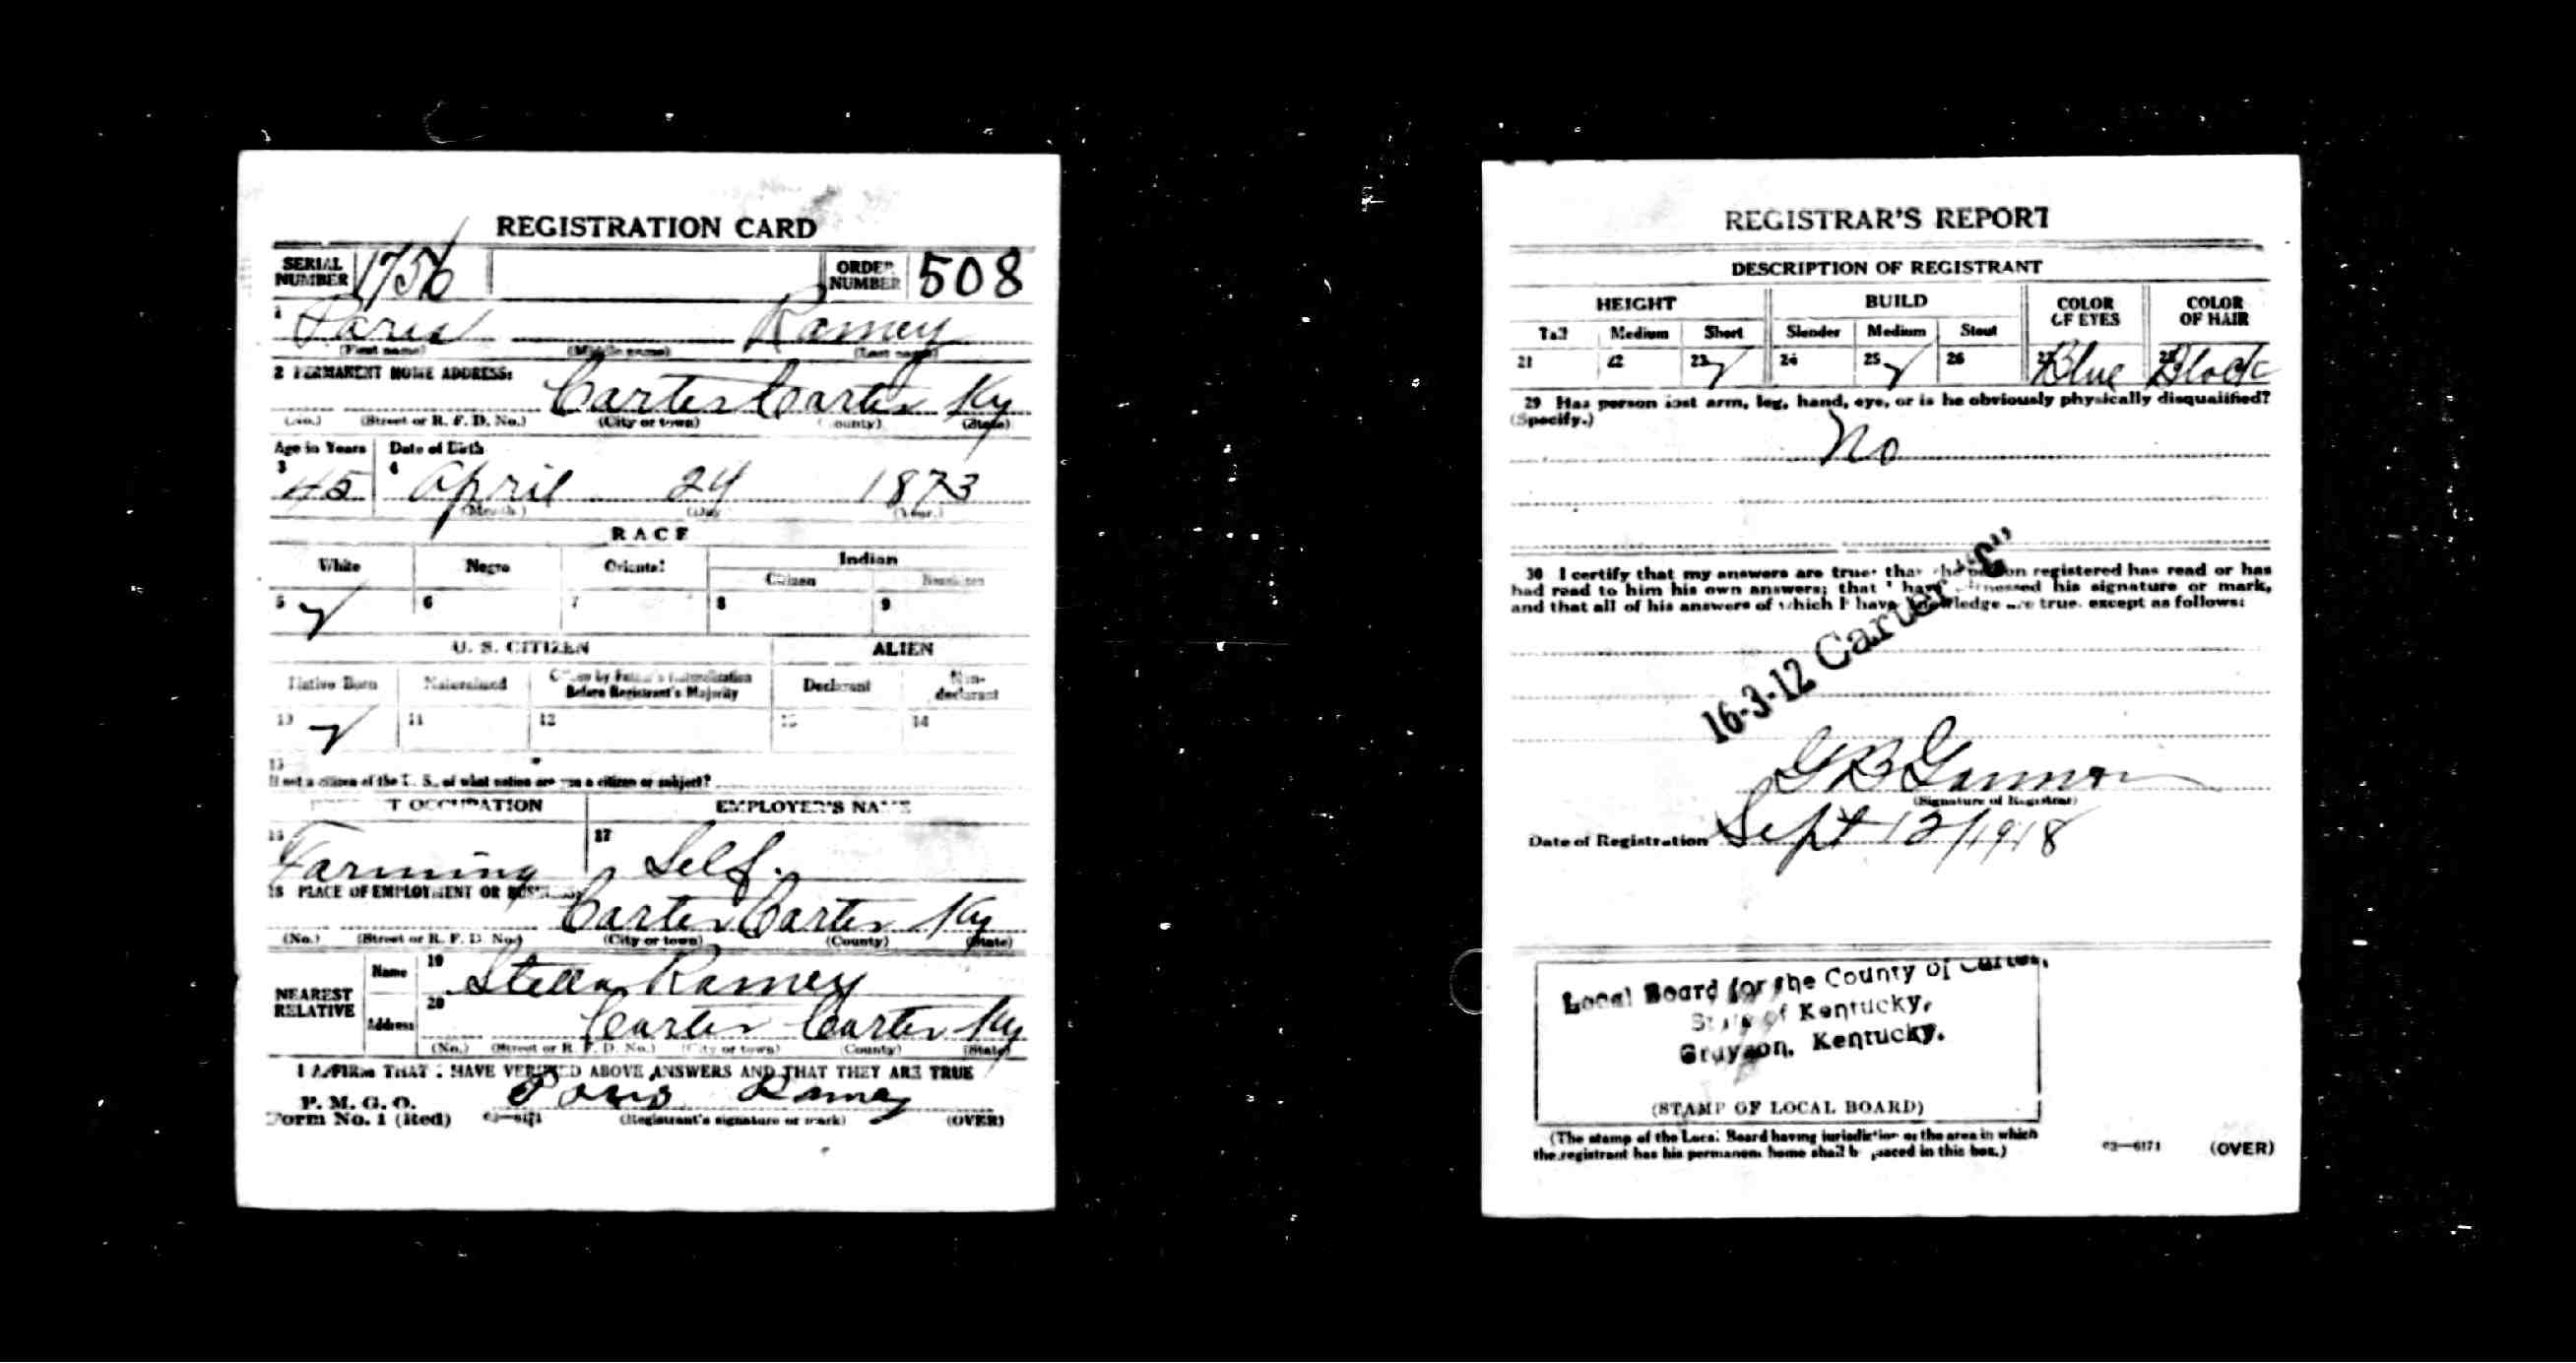 REGISTRATION CARD
SERIAL NUMBER 1756 ORDER NUMBER 508
1 Paris Ramey
(First name) (Middle name) (Last name)
2 PERMANENT HOME ADDRESS:
Carter Carter Ky
(No.) (Street or R. F. D. No.) (City or town) (County) (State)
Age in Years Date of Birth
3 45 4 April 24 1873
(Month.) (Day.) (Year.)
RACE
White Negro Oriental Indian
Citizen Noncitizen
5 ✓ 6 7 8 9
U. S. CITIZEN ALIEN
Native Born Naturalized Citizen by Father's Naturalization Before Registrant's Majority Declarant Non-declarant
10 ✓ 11 12 13 14
15
If not a citizen of the U. S., of what nation are you a citizen or subject?
PRESENT OCCUPATION EMPLOYER'S NAME
16 Farming 17 Self.
18 PLACE OF EMPLOYMENT OR BUSINESS:
Carter Carter Ky
(No.) (Street or R. F. D. No.) (City or town) (County) (State)
NEAREST RELATIVE
Name 19 Stella Ramey
Address 20 Carter Carter Ky
(No.) (Street or R. F. D. No.) (City or town) (County) (State)
I AFFIRM THAT I HAVE VERIFIED ABOVE ANSWERS AND THAT THEY ARE TRUE
P. M. G. O.
Form No. 1 (Red) 03—6171 Paris Ramey
(Registrant's signature or mark) (OVER)
REGISTRAR'S REPORT
DESCRIPTION OF REGISTRANT
HEIGHT BUILD COLOR OF EYES COLOR OF HAIR
Tall Medium Short Slender Medium Stout
21 22 23 ✓ 24 25 ✓ 26 27 Blue 28 Black
29 Has person lost arm, leg, hand, eye, or is he obviously physically disqualified?
(Specify.)
No
30 I certify that my answers are true; that the person registered has read or has
had read to him his own answers; that I have witnessed his signature or mark,
and that all of his answers of which I have knowledge are true, except as follows:
16-3-12 Carter "C"
G B
(Signature of Registrar)
Date of Registration Sept 12/1918
Local Board for the County of Carter,
State of Kentucky,
Grayson, Kentucky.
(STAMP OF LOCAL BOARD)
(The stamp of the Local Board having jurisdiction of the area in which
the registrant has his permanent home shall be placed in this box.)
03—6171 (OVER)